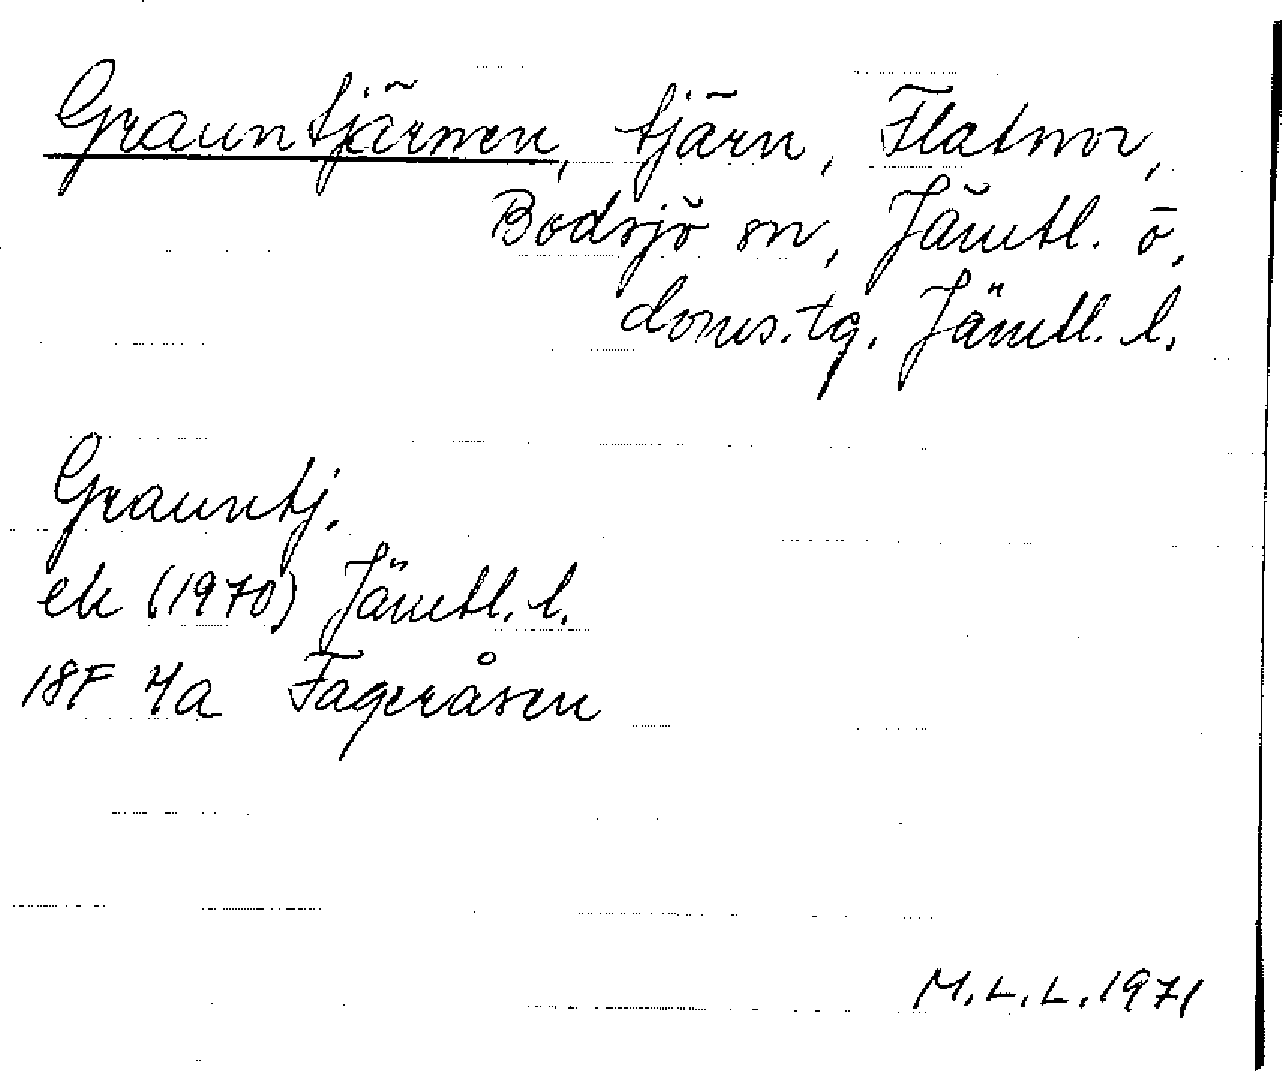 Grauntjärnen, tjärn, Flatnor,
Bodsjö sn, Jämtl. ö,
doms.tg. Jämtl. l.
Grauntj.
ek (1970) Jämtl. l.
18F 4a Fageråsen
M.L.L. 1971